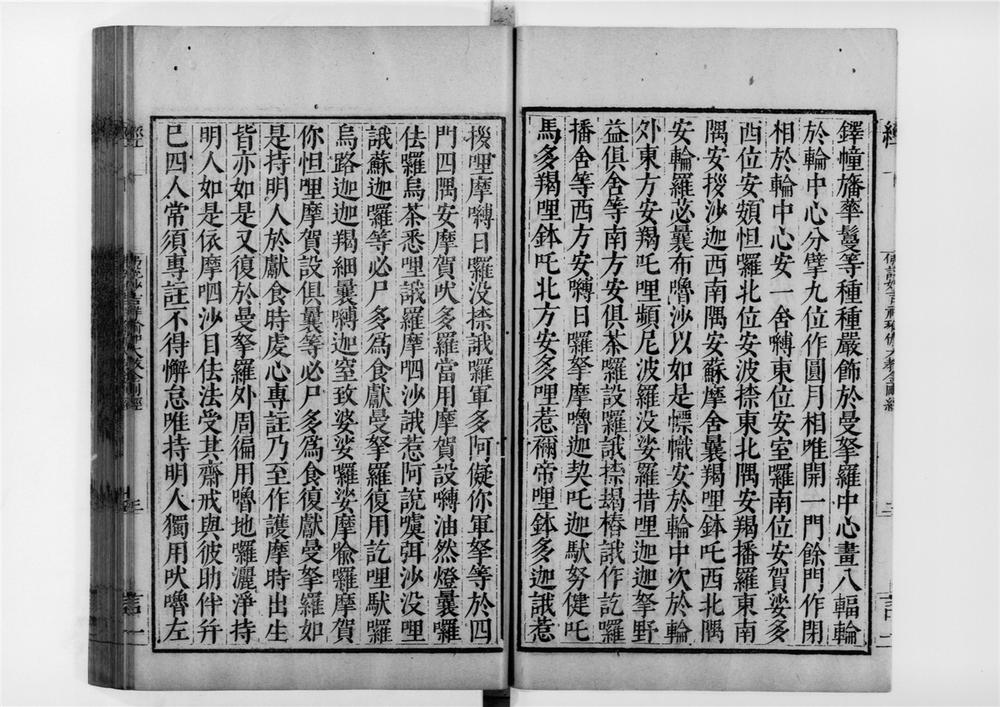 鐸幢旛華鬘等種種嚴飾於曼拏羅中心畫八輻輪
於輪中心分擘九位作圓月相唯開一門餘門作閉
相於輪中心安一舍嚩東位安室囉南位安賀娑多
西位安頞怛囉北位安波捺東北隅安羯播羅東南
隅安拶沙迦西南隅安蘇摩舍曩羯哩鉢吒西北隅
安輪羅苾曩布嚕沙以如是幖幟安於輪中次於輪
外東方安羯吒哩頻尼波羅没娑羅措哩迦迦拏野
益俱舍等南方安俱茶囉設囉誐捺朅椿誐作訖囉
播舍等西方安嚩日囉拏摩嚕迦契吒迦馱努健吒
馬多羯哩鉢吒北方安多哩惹禰帝哩鉢多迦誐惹
拶哩摩嚩日囉没捺誐囉軍多阿儗你軍拏等於四
門四隅安摩賀吠多羅當用摩賀設嚩油然燈曩囉
佉囉烏茶悉哩誐羅摩呬沙誐惹阿說嚩弭沙没哩
誐蘇迦囉等必尸多為食獻曼拏羅復用訖哩馱囉
烏路迦迦羯細曩嚩迦窒致婆娑囉娑摩喻囉摩賀
你怛哩摩賀設俱曩等必尸多為食復獻曼拏羅如
是持明人於獻食時虔心專註乃至作護摩時出生
皆亦如是又復於曼拏羅外周徧用嚕地囉灑淨持
明人如是依摩呬沙日佉法受其齋戒與彼助伴幷
巳四人常須專註不得懈怠唯持明人獨用吠嚕左